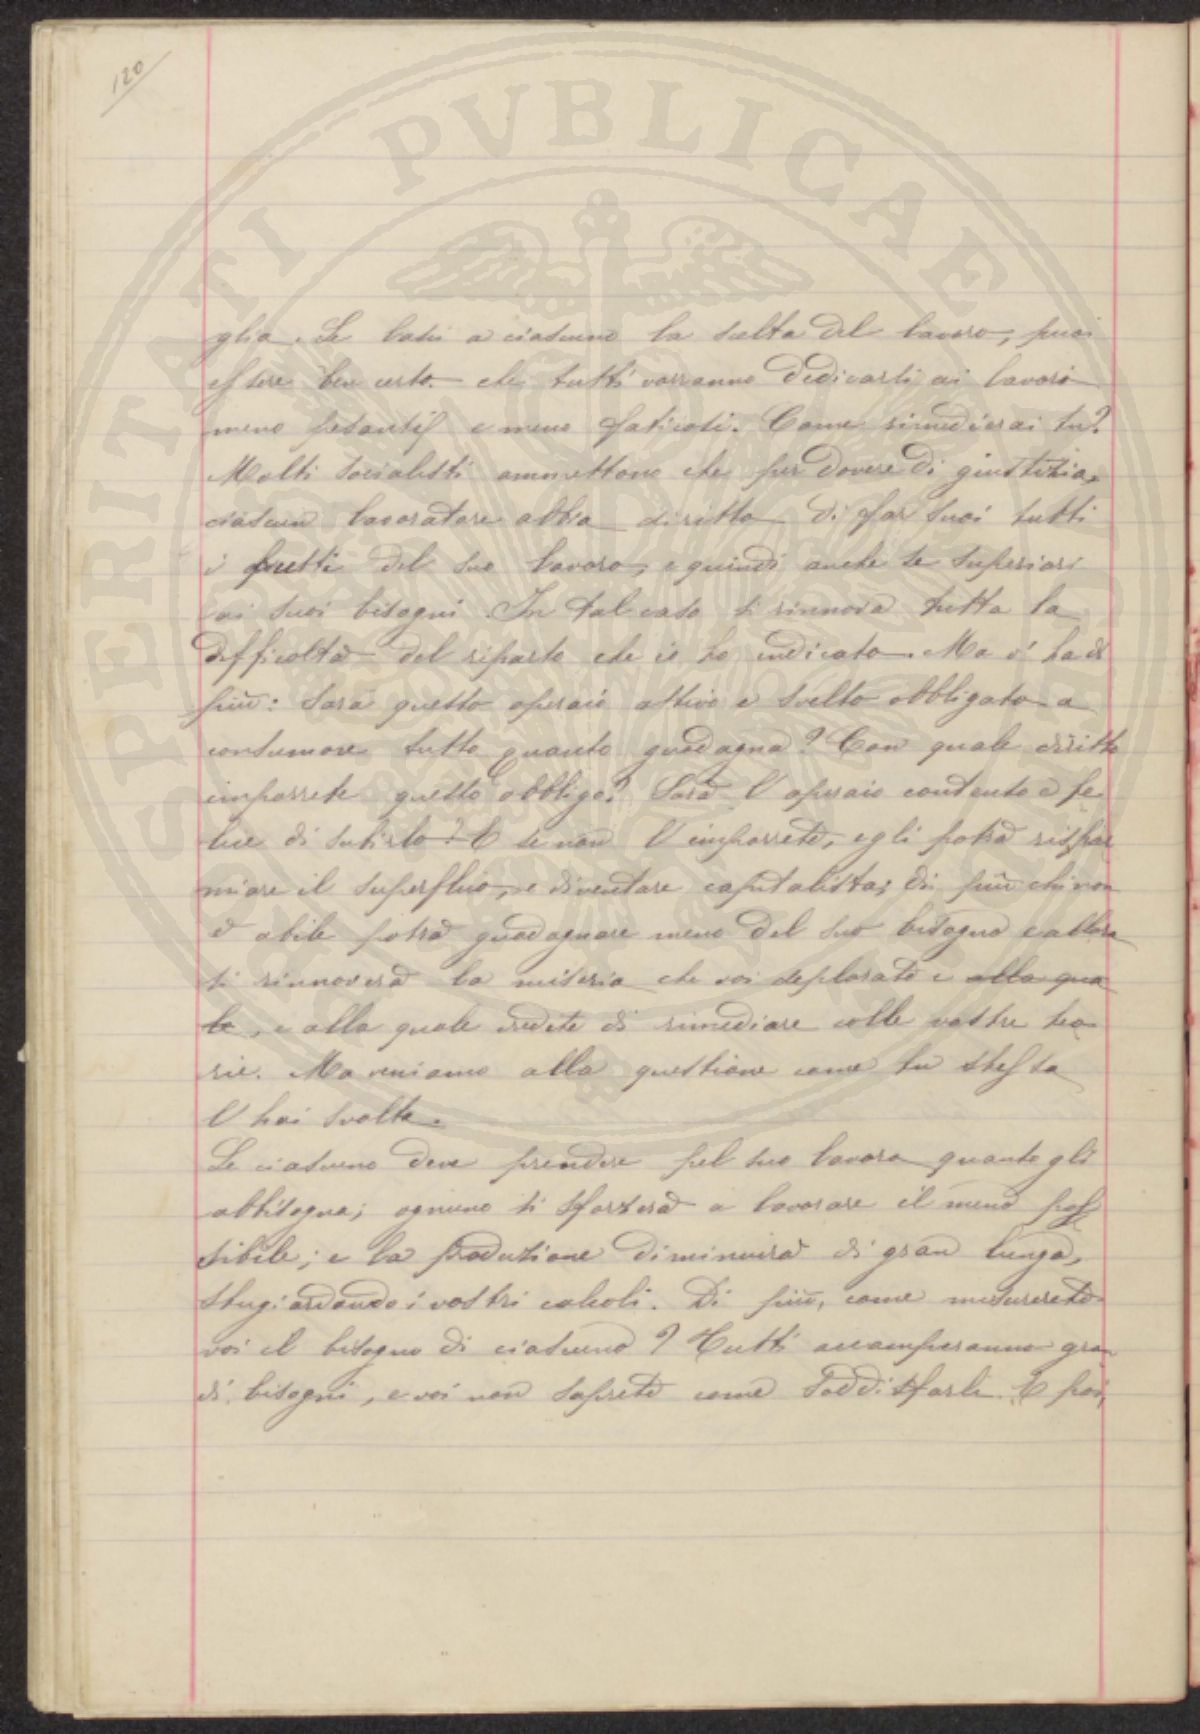 120
PROSPERITATI PVBLICAE
glia. Se lasci a ciascuno la scelta del lavoro, puoi
essere ben certo che tutti vorranno dedicarsi ai lavori
meno pesanti e meno faticosi. Come rimedierai tu?
Molti socialisti ammettono che per dovere di giustizia,
ciascun lavoratore abbia diritto di far suoi tutti
i frutti del suo lavoro, e quindi anche se superiori
ai suoi bisogni. In tal caso si rinnova tutta la
difficoltà del riparto che io ho indicato. Ma v'ha di
più: sarà questo operaio attivo e svelto obbligato a
consumare tutto quanto guadagna? Con quale diritto
imporrete questo obbligo? Sarà l'operaio contento e fe
lice di subirlo? E se non l'imporrete, egli potrà rispar
miare il superfluo, e diventare capitalista; di più chi non
è abile potrà guadagnare meno del suo bisogno e allora
si rinnoverà la miseria che voi deplorate e alla qua
le, e alla quale credete di rimediare colle vostre teo
rie. Ma veniamo alla questione come tu stessa
l'hai svolta.
Se ciascuno deve prendere pel suo lavoro quanto gli
abbisogna; ognuno si sforzerà a lavorare il meno pos
sibile; e la produzione diminuirà di gran lunga,
sbugiardando i vostri calcoli. Di più, come misurerete
voi il bisogno di ciascuno? Tutti accamperanno gran
di bisogni, e voi non saprete come soddisfarli. E poi,